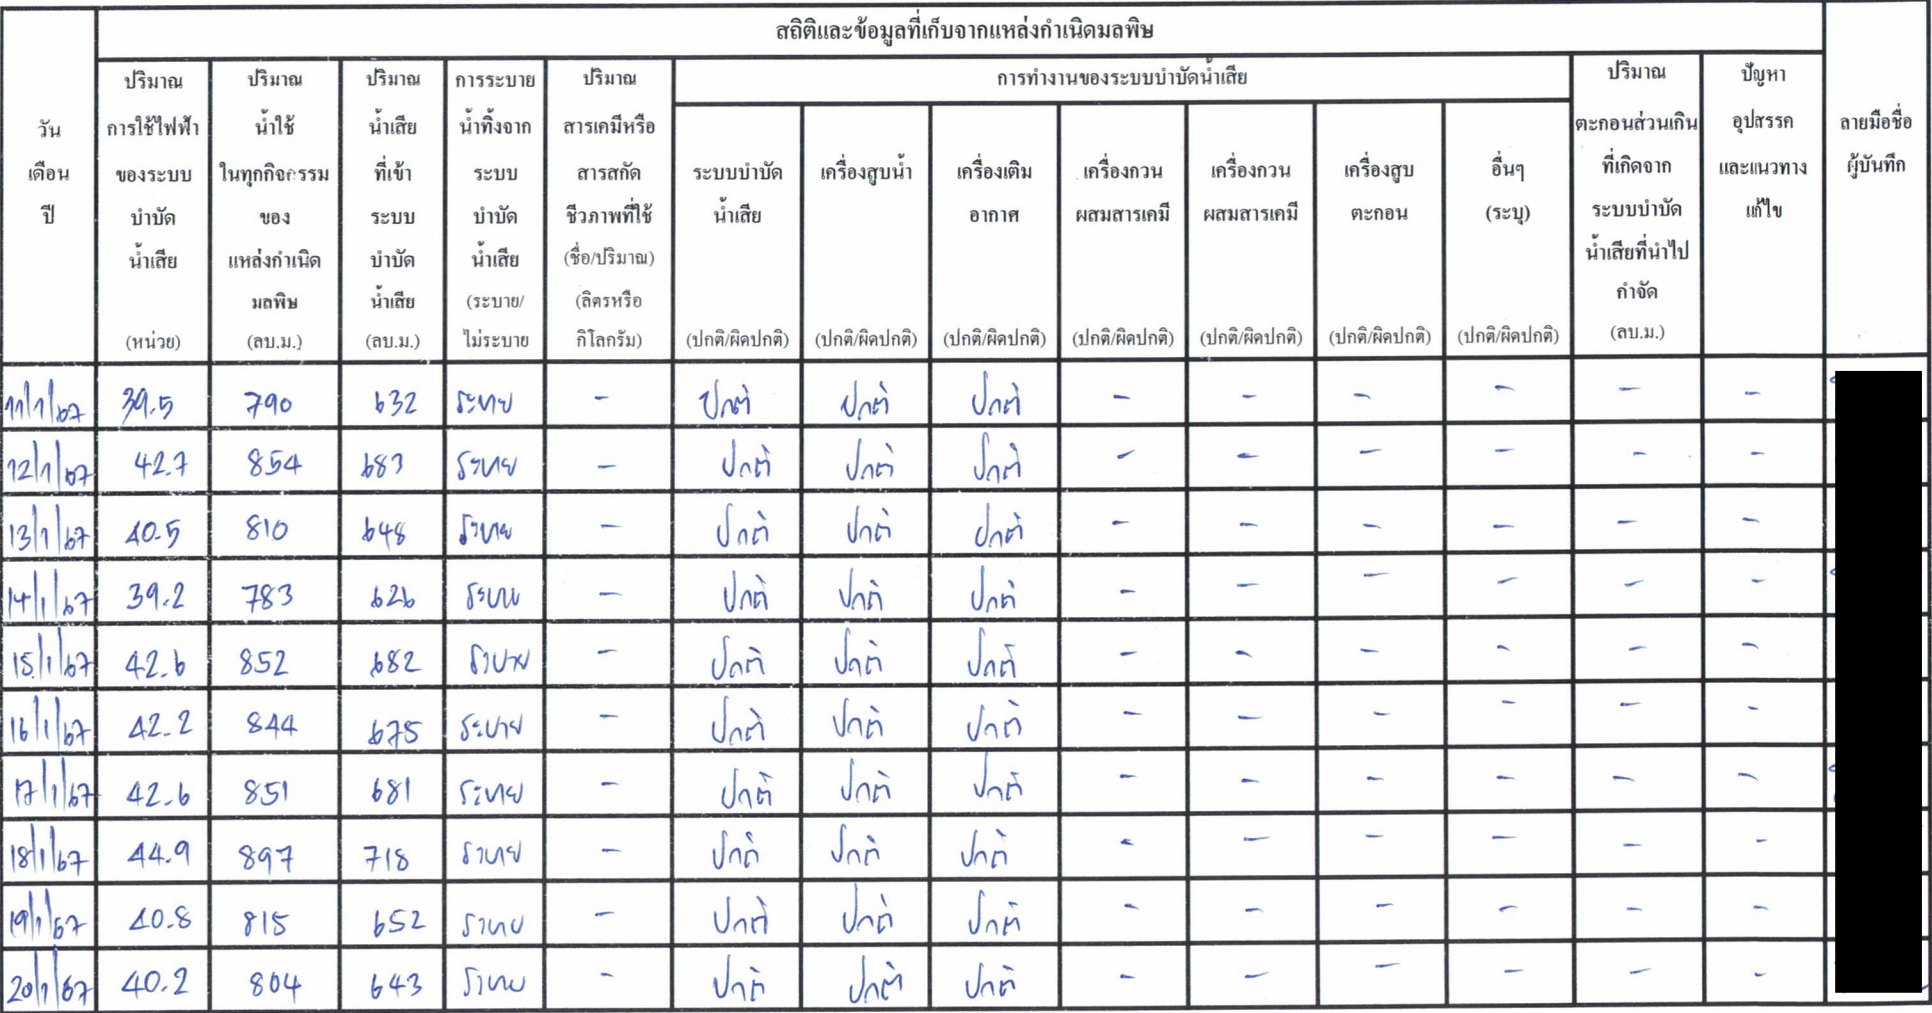 สถิติและข้อมูลที่เก็บจากแหล่งกำเนิดมลพิษ
วัน เดือน ปี
ปริมาณ การใช้ไฟฟ้า ของระบบ บำบัด น้ำเสีย (หน่วย)
ปริมาณ น้ำใช้ ในทุกกิจกรรม ของ แหล่งกำเนิด มลพิษ (ลบ.ม.)
ปริมาณ น้ำเสีย ที่เข้า ระบบ บำบัด น้ำเสีย (ลบ.ม.)
การระบาย น้ำทิ้งจาก ระบบ บำบัด น้ำเสีย (ระบาย/ ไม่ระบาย
ปริมาณ สารเคมีหรือ สารสกัด ชีวภาพที่ใช้ (ชื่อ/ปริมาณ) (ลิตรหรือ กิโลกรัม)
การทำงานของระบบบำบัดน้ำเสีย
ระบบบำบัด น้ำเสีย (ปกติ/ผิดปกติ)
เครื่องสูบน้ำ (ปกติ/ผิดปกติ)
เครื่องเติม อากาศ (ปกติ/ผิดปกติ)
เครื่องกวน ผสมสารเคมี (ปกติ/ผิดปกติ)
เครื่องกวน ผสมสารเคมี (ปกติ/ผิดปกติ)
เครื่องสูบ ตะกอน (ปกติ/ผิดปกติ)
อื่นๆ (ระบุ) (ปกติ/ผิดปกติ)
ปริมาณ ตะกอนส่วนเกิน ที่เกิดจาก ระบบบำบัด น้ำเสียที่นำไป กำจัด (ลบ.ม.)
ปัญหา อุปสรรค และแนวทาง แก้ไข
ลายมือชื่อ ผู้บันทึก
11/1/67 39.5 790 632 ระบาย - ปกติ ปกติ ปกติ - - - - - -
12/1/67 42.7 854 683 ระบาย - ปกติ ปกติ ปกติ - - - - - -
13/1/67 40.5 810 648 ระบาย - ปกติ ปกติ ปกติ - - - - - -
14/1/67 39.2 783 626 ระบาย - ปกติ ปกติ ปกติ - - - - - -
15/1/67 42.6 852 682 ระบาย - ปกติ ปกติ ปกติ - - - - - -
16/1/67 42.2 844 675 ระบาย - ปกติ ปกติ ปกติ - - - - - -
17/1/67 42.6 851 681 ระบาย - ปกติ ปกติ ปกติ - - - - - -
18/1/67 44.9 897 718 ระบาย - ปกติ ปกติ ปกติ - - - - - -
19/1/67 40.8 815 652 ระบาย - ปกติ ปกติ ปกติ - - - - - -
20/1/67 40.2 804 643 ระบาย - ปกติ ปกติ ปกติ - - - - - -